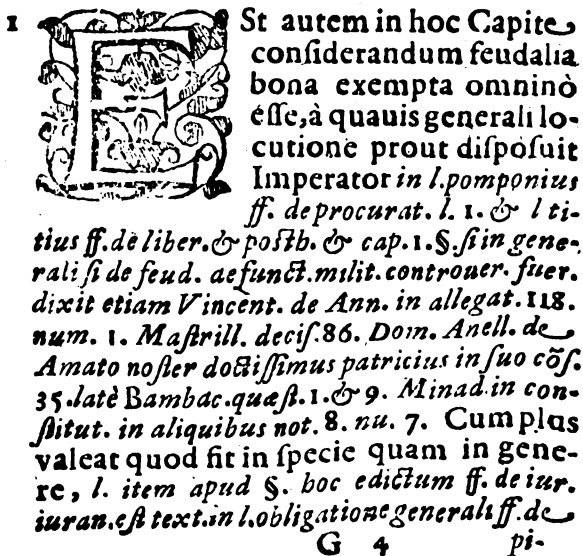 1 ESt autem in hoc Capite
conſiderandum feudalia
bona exempta omninò
eſſe, à quauis generali lo-
cutione prout diſpoſuit
Imperator in l. pomponius
ff. de procurat. l. 1. & l ti-
tius ff. de liber. & poſth. & cap. 1. §. ſi in gene-
rali ſi de feud. defunct. milit. controuer. fuer.
dixit etiam Vincent. de Ann. in allegat. 118.
num. 1. Maſtrill. deciſ. 86. Dom. Anell. de
Amato noſter doctiſſimus patricius in ſuo cõſ.
35. latè Bambac. quæſt. 1. & 9. Minad. in con-
ſtitut. in aliquibus not. 8. nu. 7. Cum plus
valeat quod fit in ſpecie quam in gene-
re, l. item apud §. hoc edictum ff. de iur.
iuran. eſt text. in l. obligatione generali ff. de
G 4 pi-